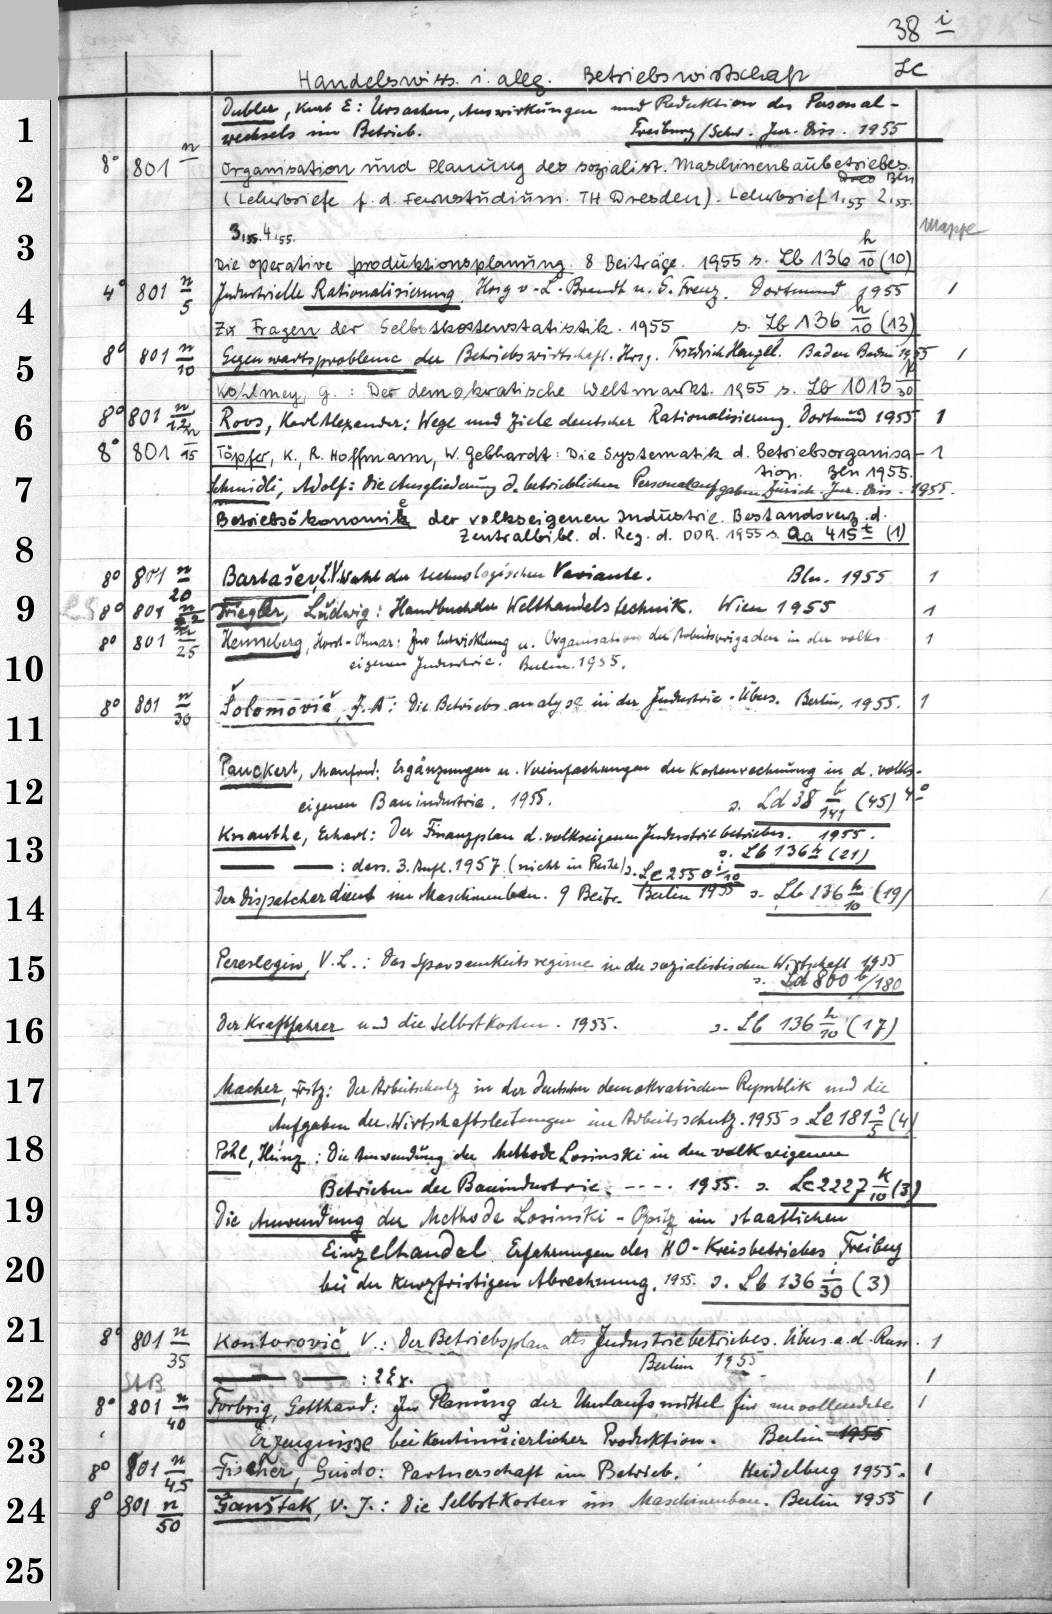 38 i
Lc
Handelswiss. i. allg. Betriebswirtschaft
1
Dubler, Kurt E: Ursachen, Auswirkungen und Reduktion des Personal-
wechsels im Betrieb. Freiburg/Schw. Jur. Diss. 1955
8° 801 n Organisation und Planung des sozialist. Maschinenbaubetriebes
Bln
2
(Lehrbriefe f. d. Fernstudium. TH Dresden). Lehrbrief 1,55 2,55.
3,55. 4,55. Mappe
3
Die operative Produktionsplanung. 8 Beiträge. 1955 s. Lb 136 h/10 (10)
4° 801 n/5 Industrielle Rationalisierung. Hrsg v. L. Brandt u. G. Frenz. Dortmund 1955 1
4
Zu Fragen der Selbstkostenstatistik. 1955 s. Lb 136 h/10 (13)
8° 801 n/10 Gegenwartsprobleme der Betriebswirtschaft. Hrsg. Friedrich Henzel. Baden Baden 1955 1
5
Kohlmey, G.: Der demokratische Weltmarkt. 1955 s. Lb 1013 p/30
6
8° 801 n/12 Roos, Karl Alexander: Wege und Ziele deutscher Rationalisierung. Dortmund 1955 1
8° 801 n/15 Töpfer, K., R. Hoffmann, W. Gebhardt: Die Systematik d. Betriebsorganisa- 1
tion. Bln 1955.
7
Schmidli, Adolf: Die Ausgliederung d. betrieblichen Personalaufgaben. Zürich. Jur. Diss. 1955.
Betriebsökonomik der volkseigenen Industrie. Bestandsverz. d.
Zentralbibl. d. Reg. d. DDR. 1955 s. Aa 415 t (1)
8
8° 801 n/20 Bartašev, L.V. Wahl der technologischen Variante. Bln. 1955 1
9
LS 8° 801 n/22 Friegler, Ludwig: Handbuch der Welthandelstechnik. Wien 1955 1
8° 801 n/25 Henneberg, Horst-Otmar: Zur Entwicklung u. Organisation der Arbeitsbrigaden in der volks- 1
10
eigenen Industrie. Berlin. 1955.
8° 801 n/30 Šolomovič, J. A: Die Betriebsanalyse in der Industrie. Übers. Berlin, 1955. 1
11
Pauckert, Manfred: Ergänzungen u. Vereinfachungen der Kostenrechnung in d. volks-
12
eigenen Bauindustrie. 1955. s. Ld 38 b/141 (45) 4°
Knauthe, Erhart: Der Finanzplan d. volkseigenen Industriebetriebes. 1955.
13
s. Lb 136 h (21)
—— —— : dass. 3. Aufl. 1957 (nicht in Reihe) s. Lc 2550 i/10
14
Der Dispatcherdienst im Maschinenbau. 9 Beitr. Berlin 1955 s. Lb 136 h/10 (19)
15
Pereslegin, V. L.: Das Sparsamkeitsregime in der sozialistischen Wirtschaft 1955
s. Ld 800 b/180
16
Der Kraftfahrer und die Selbstkosten. 1955. s. Lb 136 h/10 (17)
17
Macher, Fritz: Der Arbeitsschutz in der Deutschen demokratischen Republik und die
Aufgaben der Wirtschaftsleitungen im Arbeitsschutz. 1955 s. Le 181 s/5 (4)
18
Pohl, Heinz: Die Anwendung der Methode Losinski in den volkseigenen
Betrieben der Bauindustrie. ---- 1955. s. Lc 2227 k/10 (3)
19
Die Anwendung der Methode Losinski-Opitz im staatlichen
Einzelhandel. Erfahrungen des HO-Kreisbetriebes Freiberg
20
bei der kurzfristigen Abrechnung. 1955. s. Lb 136 i/30 (3)
21
8° 801 n/35 Kontorovič, V.: Der Betriebsplan des Industriebetriebes. Übers. a. d. Russ. 1
Berlin 1955
22
StB —— 8 —— : 2 Ex. 1
8° 801 n/40 Forbrig, Gotthard: Zur Planung der Umlaufsmittel für unvollendete 1
23
Erzeugnisse bei kontinuierlicher Produktion. Berlin 1955
8° 801 n/45 Fischer, Guido: Partnerschaft im Betrieb. Heidelberg 1955. 1
24
8° 801 n/50 Ganštak, V. J.: Die Selbstkosten im Maschinenbau. Berlin 1955 1
25